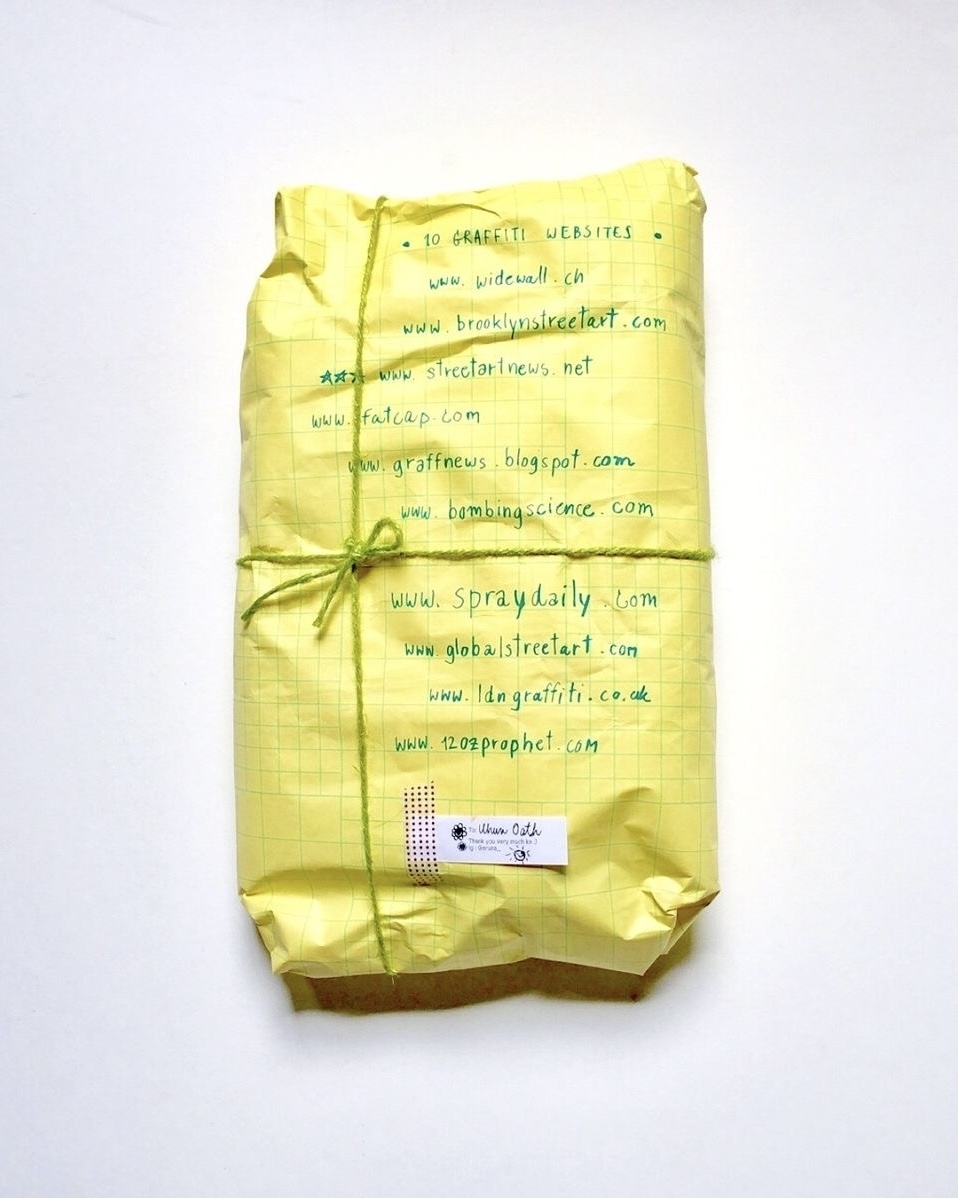 • 10 GRAFFITI WEBSITES •
www. widewall. ch
www. brooklynstreetart. com
www. streetartnews. net
www. fatcap. com
www. graffnews. blogspot. com
www. bombingscience. com
www. spraydaily. com
www. globalstreetart. com
www. ldngraffiti. co. uk
www. 12ozprophet. com
To: Oath
Thank you very much ka :)
Ig :